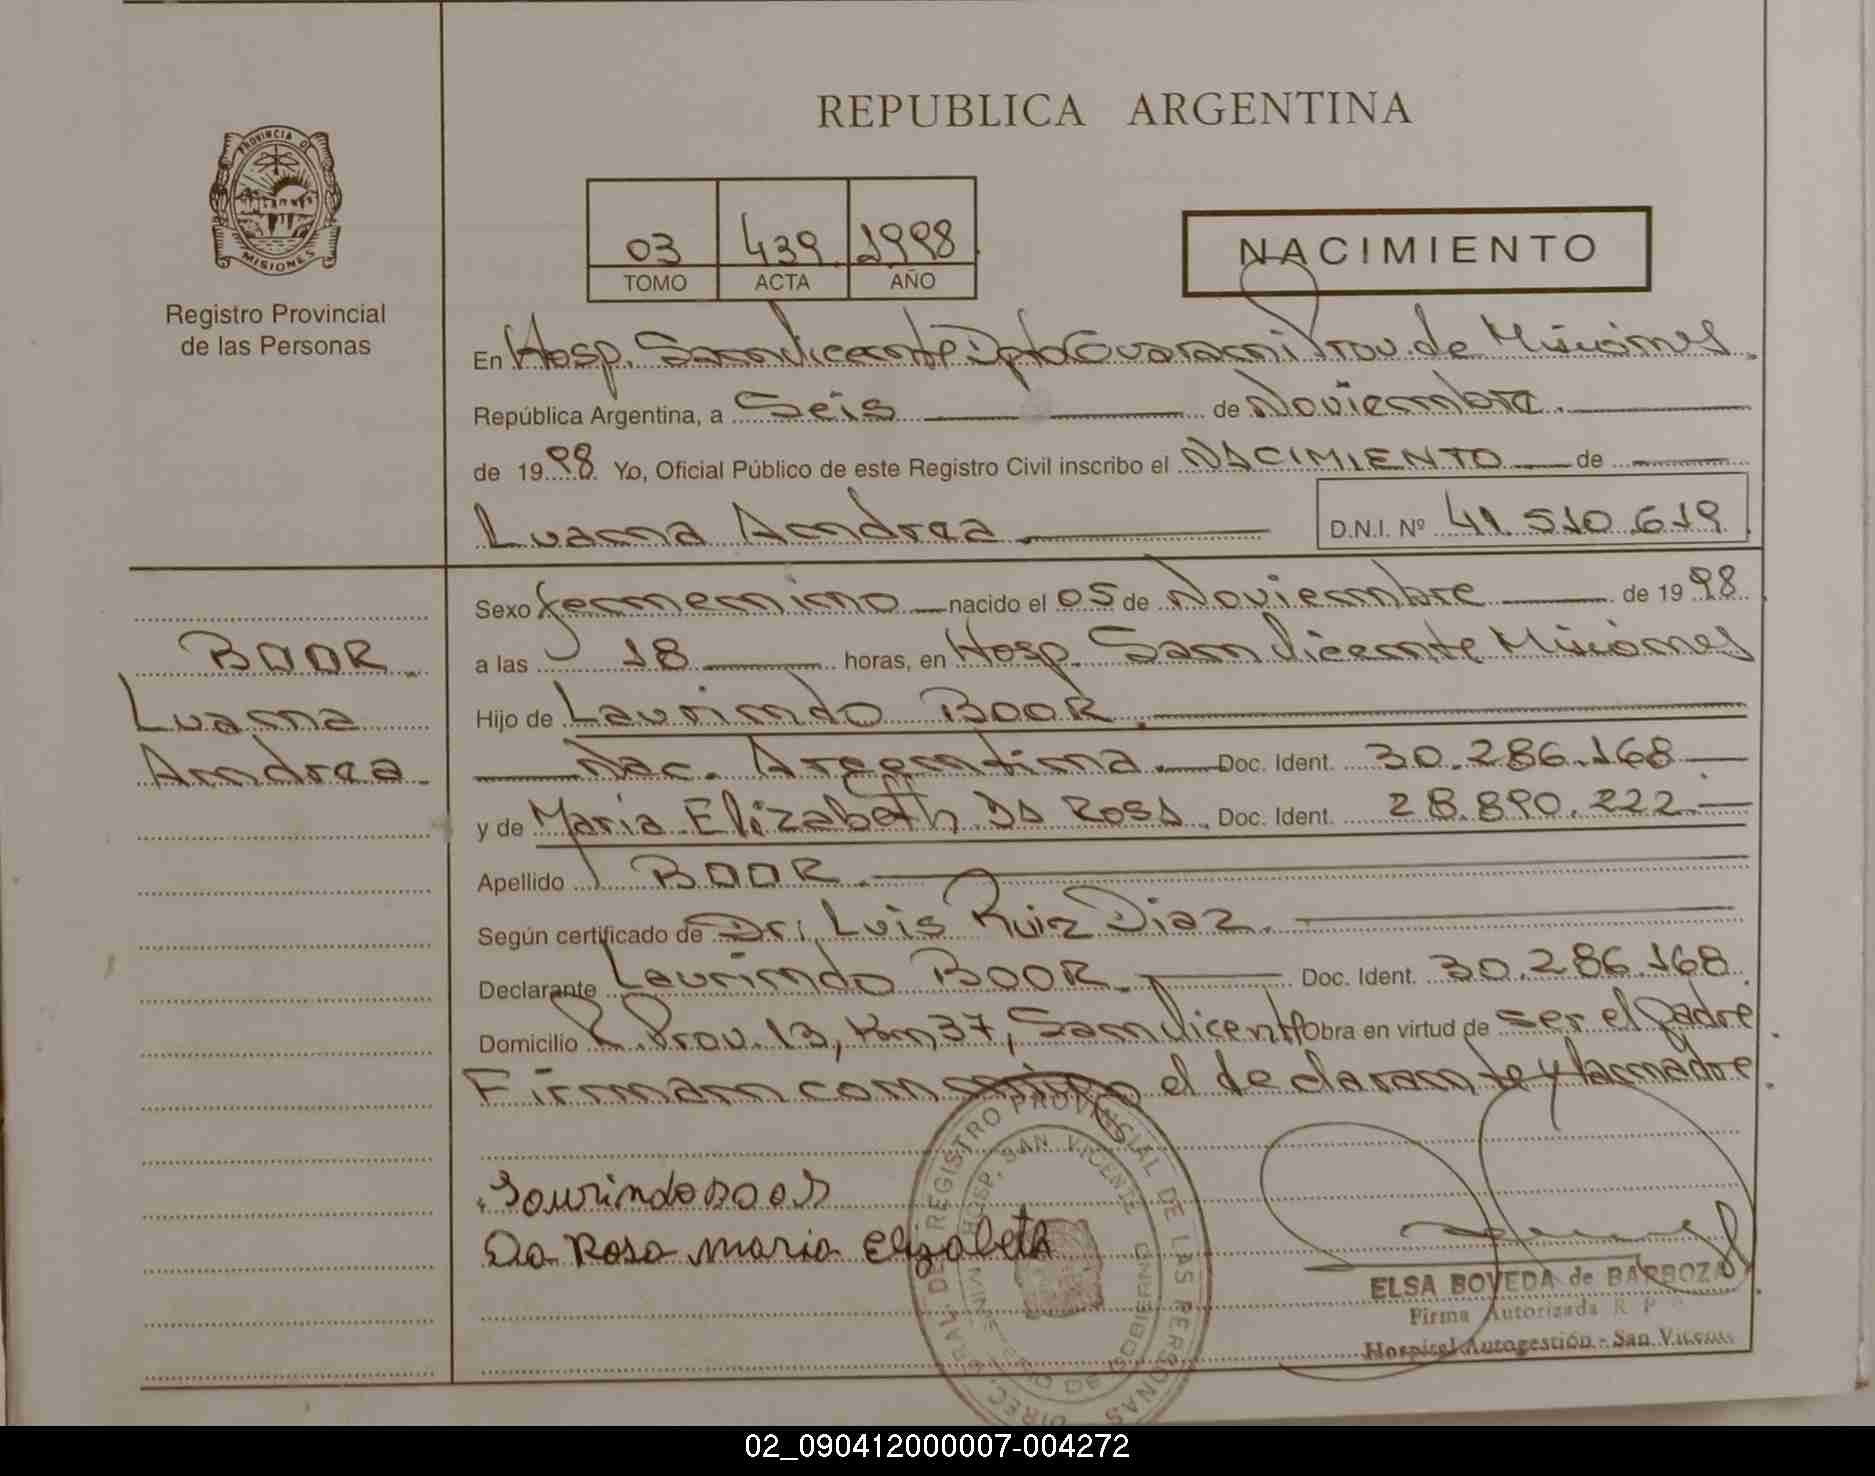 REPUBLICA ARGENTINA
PROVINCIA D
MISIONES
Registro Provincial
de las Personas
03 439 1998
TOMO ACTA AÑO
NACIMIENTO
En Hosp. San Vicente Dpto Guarani Prov. de Misiones.
República Argentina, a Seis de Noviembre.
de 19 98 Yo, Oficial Público de este Registro Civil inscribo el NACIMIENTO de
Luana Andrea D.N.I. Nº 41.510.619
Sexo femenino nacido el 05 de Noviembre de 19 98
a las 18 horas, en Hosp. San Vicente Misiones
Hijo de Laurindo BOOR.
Nac. Argentina. Doc. Ident. 30.286.168
y de Maria Elizabeth DA ROSA. Doc. Ident. 28.890.222
Apellido BOOR.
Según certificado de Dr. Luis Ruiz Diaz.
Declarante Laurindo BOOR. Doc. Ident. 30.286.168
Domicilio R. Prov. 13, Km 37, San Vicente Obra en virtud de ser el padre.
Firman conmigo el declarante y la madre.
BOOR.
Luana
Andrea.
Laurindo Boor
Da Rosa maria Elizabeta
DIREC. GRAL. DE REGISTRO PROVINCIAL DE LAS PERSONAS
HOSP. SAN VICENTE
DE GOBIERNO
ELSA BOVEDA de BARBOZA
Firma Autorizada R P
Hospital Autogestión - San Vicente
02_090412000007-004272